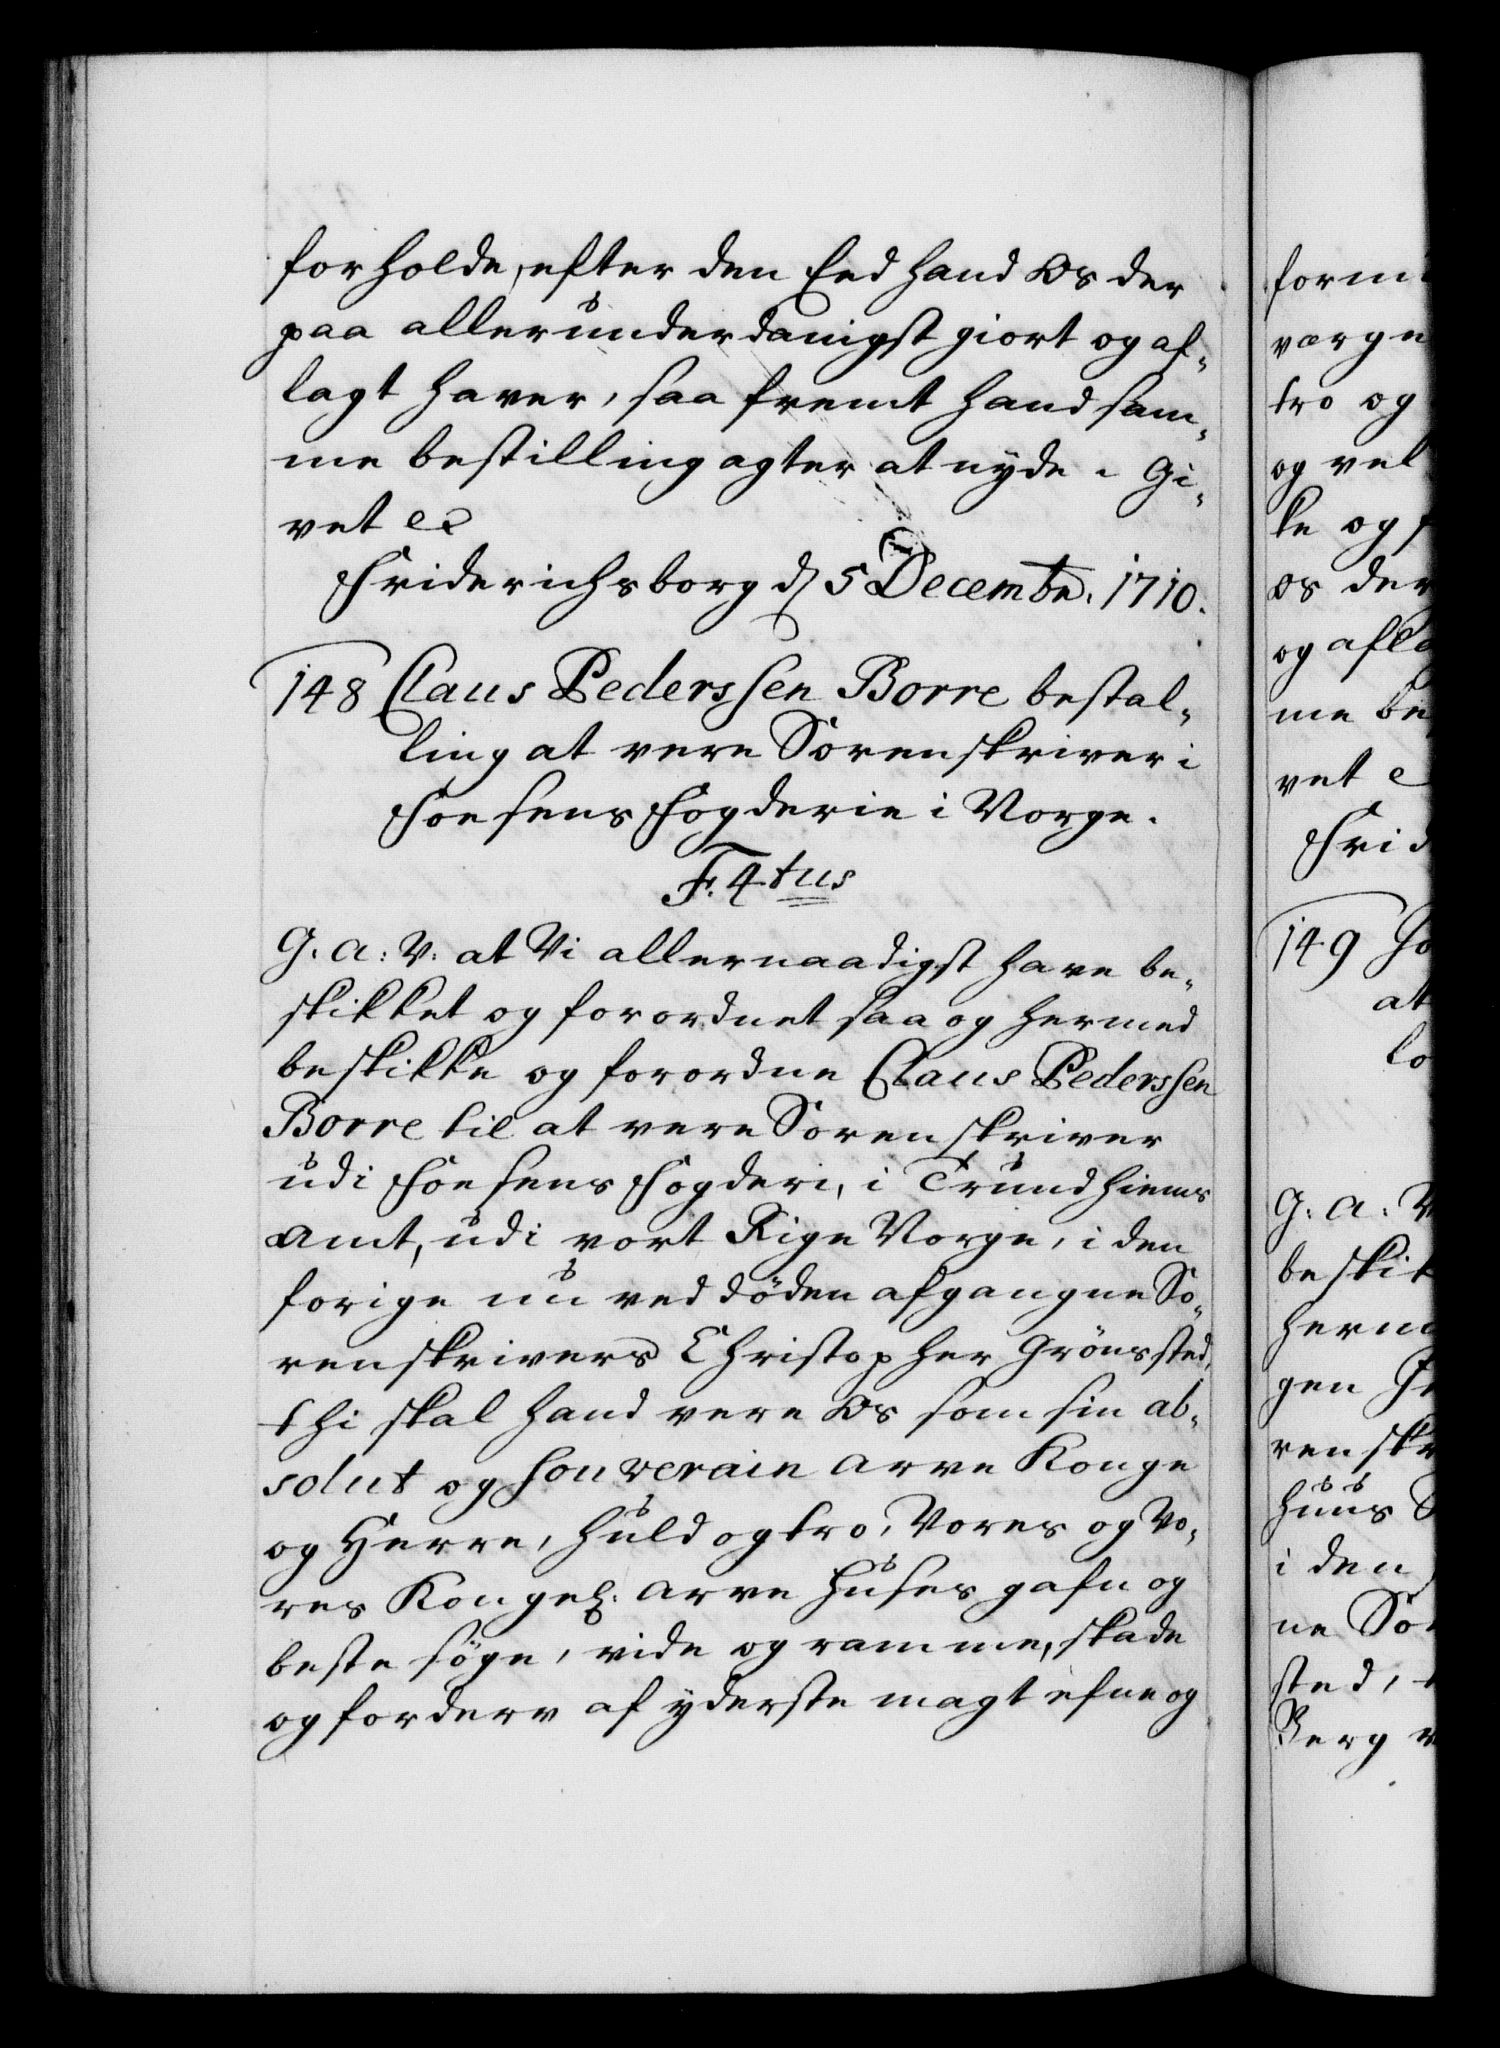 forholde, efter den Eed hand Os der
paa allerunderdanigst giort og af-
lagt haver, saa fremt hand sam-
me bestilling agter at nyde. Gi-
vet ec
Friderichsborg d 5 Decembr. 1710.
148 Claus Pederssen Borre bestal-
ling at vere Sorenskriver i
Foesens Fogderie i Norge.
F. 4tus
G. A: V: at Vi allernaadigst have be-
skikket og forordnet saa og hermed
beskikke og forordne Claus Pederssen
Borre til at vere Sorenskriver
udi Foesens Fogderi, i Trundhiems
Amt, udi vort Rige Norge, i den
forige nu ved döden afgangne So-
renskrivers Christopher Grönsted,
thi skal hand vere Os som sin ab-
solut og souverain Arve Konge
og Herre, huld og tro, Vores og Vo-
res Kongel. Arve Huses gafn og
beste söge, vide og ramme, skade
og forderv af yderste magt efne og
form
værge
tro og
og vel
te og f
os der
og afla
me be
vet e
Frid
149 Jo
at
lo
G: A: V
beskik
herm
gen Je
renskr
huus S
i den
ne Sor
sted, t
Berg v